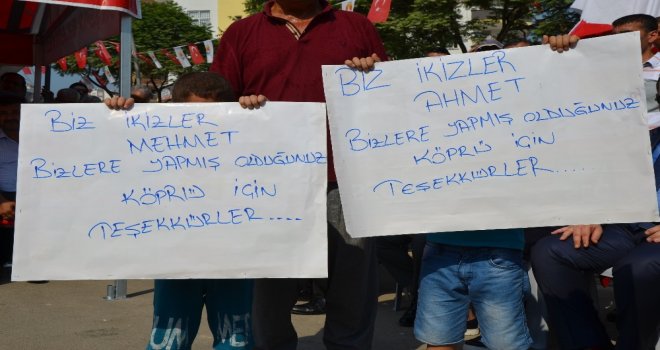 BİZ İKİZLER
MEHMET
BİZLERE YAPMIŞ OLDUĞUNUZ
KÖPRÜ İÇİN
TEŞEKKÜRLER....
BİZ İKİZLER
AHMET
BİZLERE YAPMIŞ OLDUĞUNUZ
KÖPRÜ İÇİN
TEŞEKKÜRLER.....